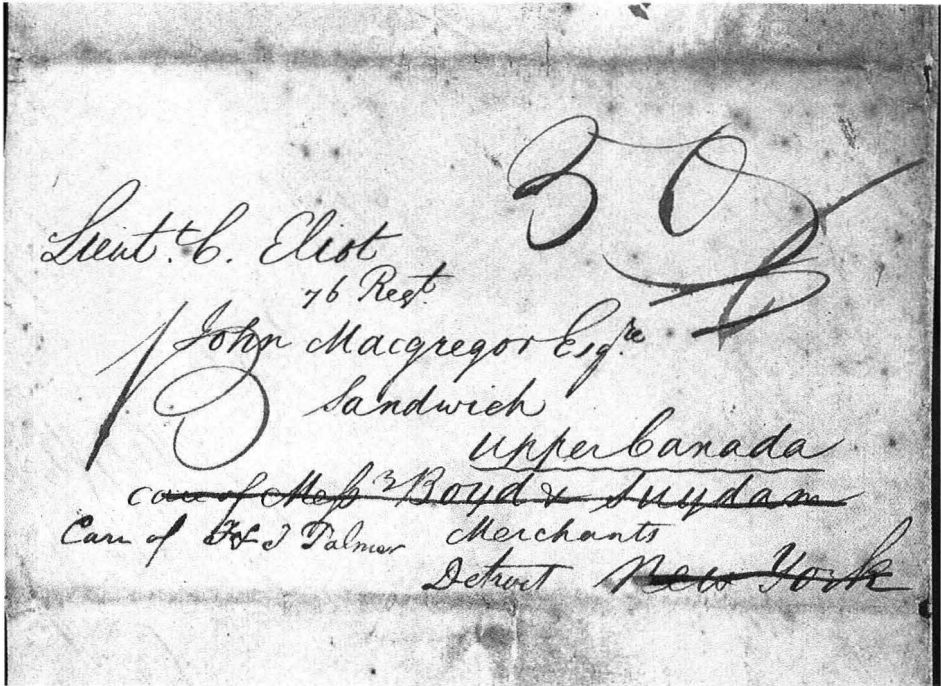 30
Lieut.t C. Eliot
76 Regt.
John Macgregor Esqre
Sandwich
Upper Canada
care of Mess rs Boyd & Suydam
Care of F & T Palmer Merchants
Detroit New York